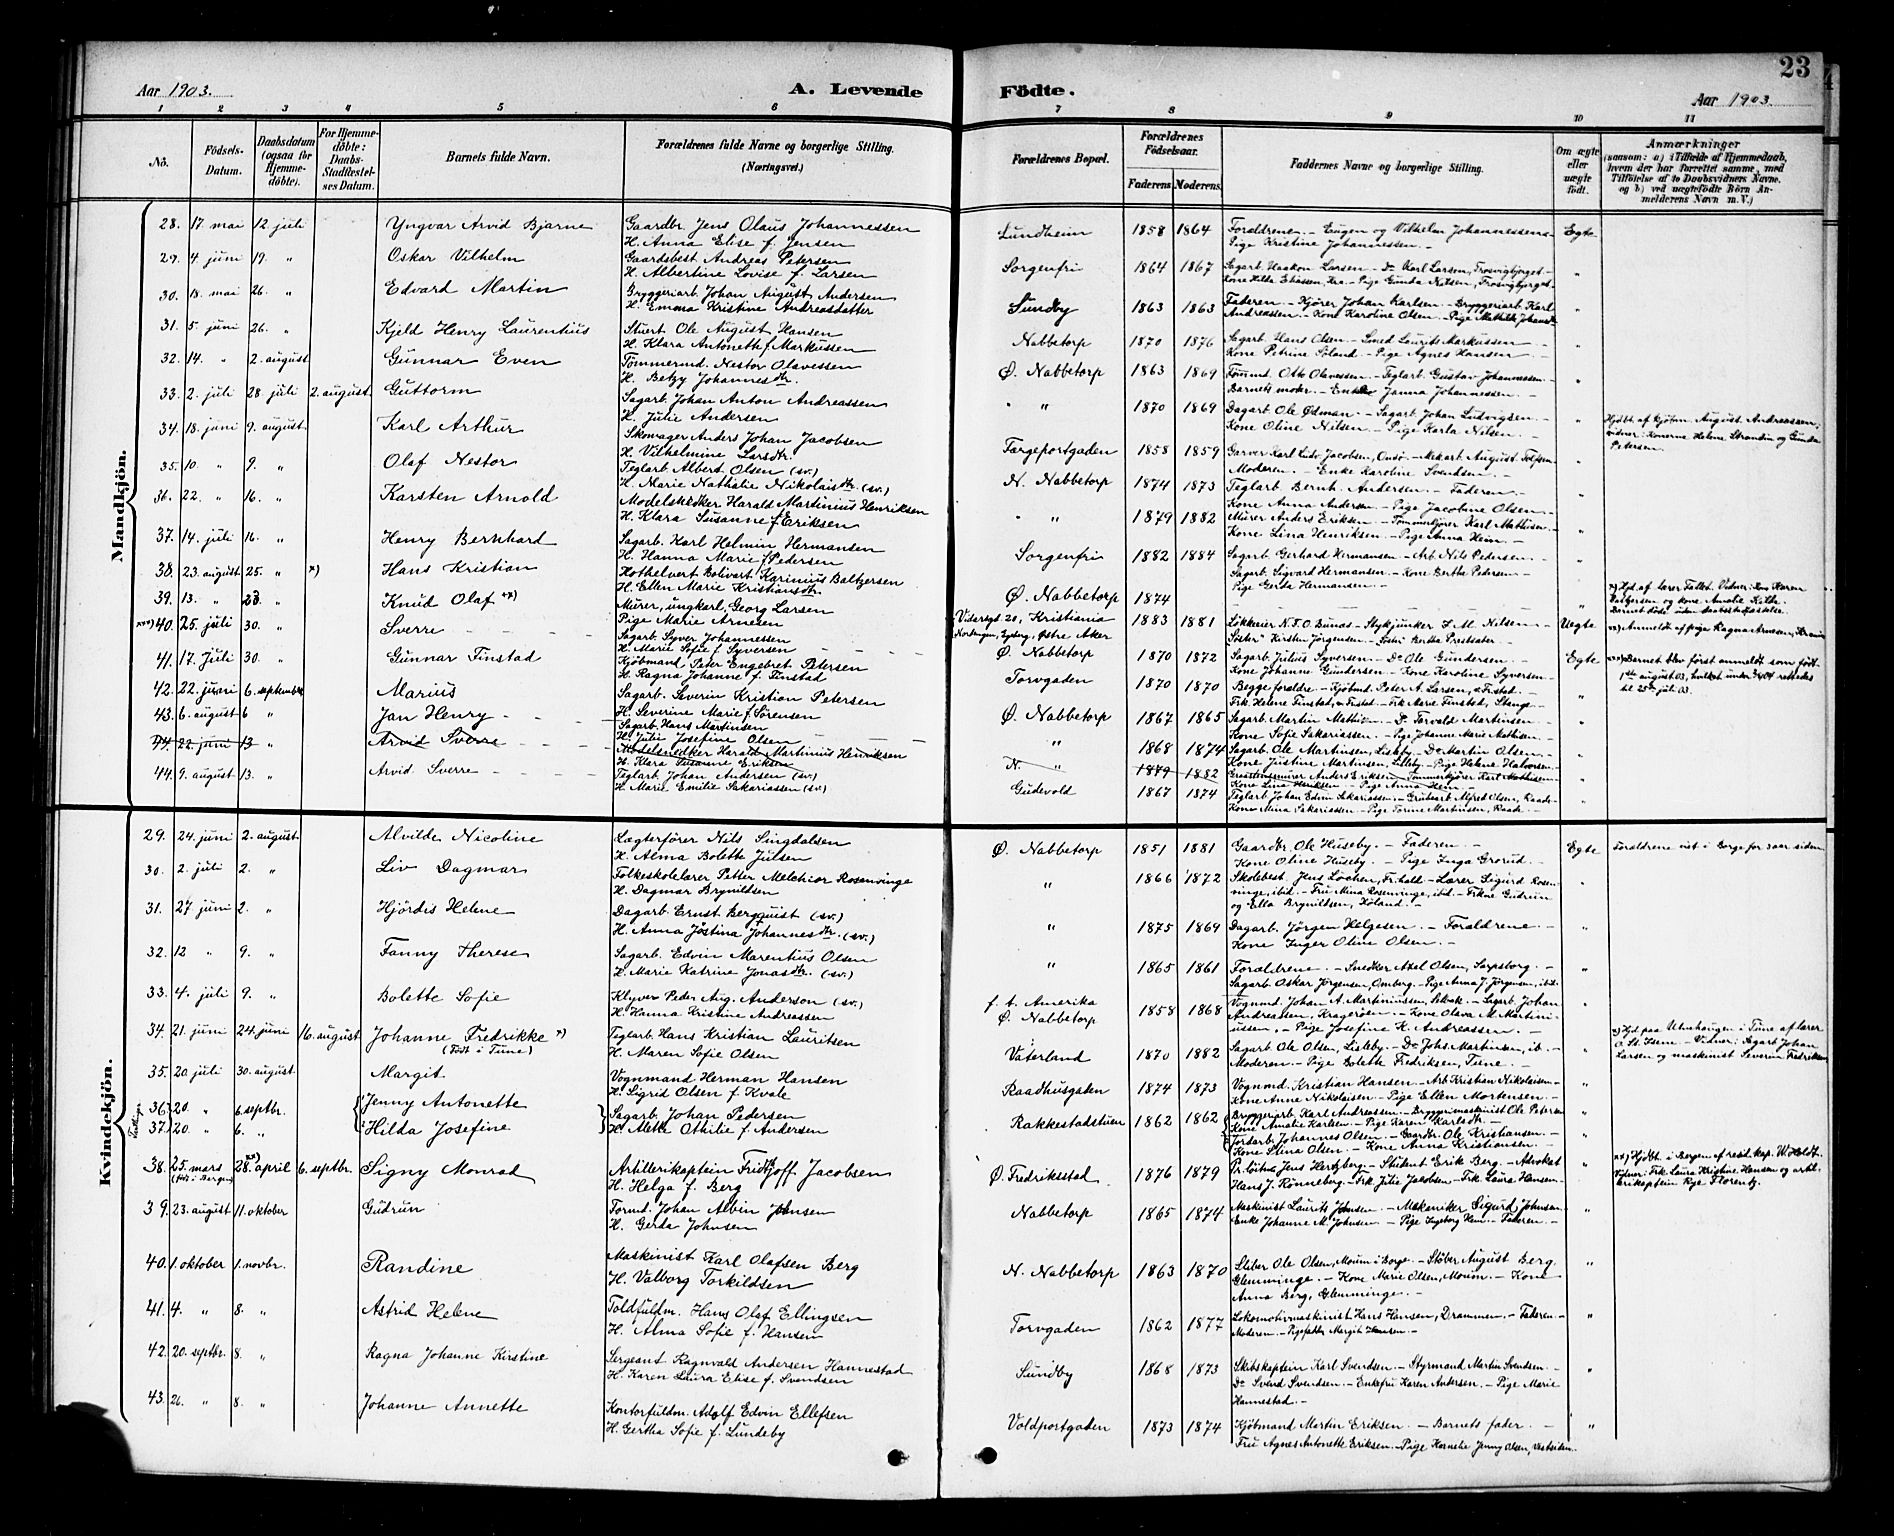 23
Aar 1903.
A. Levende
Födte.
Aar 1903
1 2 3 4 5 6 7 8 9 10 11
No.
Födsels-Datum.
Daabsdatum (ogsaa for Hjemmedöbte).
For Hjemmedöbte: Daabs-Stadfæstelses Datum.
Barnets fulde Navn.
Forældrenes fulde Navne og borgerlige Stilling. (Næringsvei.)
Forældrenes Bopæl.
Forældrenes Födselsaar.
Faderens. Moderens.
Faddernes Navne og borgerlige Stilling.
Om ægte eller uægte födt.
Anmærkninger (saasom: a) i Tilfælde af Hjemmedaab, hvem der har forrettet samme, med Tilföielse af to Daabsvidners Navne, og b) ved uægtefödte Börn Anmelderens Navn m. V.)
Mandkjön.
28. 17. mai 12. juli Yngvar Arvid Bjarne Gaardbr. Jens Olaus Johannessen
H. Anna Elise f. Jensen Lundheim 1858 1864 Forældrene. – Eugen og Vilhelm Johannessen –
Pige Kristine Johannessen. – Egte
29. 4. juni 19. " Oskar Vilhelm Gaardsbest. Andreas Petersen
H. Albertine Lovise f. Larsen Sorgenfri 1864 1867 Sagarb. Haakon Larsen – Do Karl Larsen, Trosvigbjerget –
30. 18. mai 26. " Edvard Martin Bryggeriarb. Johan August Andersen
H. Emma Kristine Andreasdatter Sundby 1863 1863 Faderen – Kjører Johan Karlsen – Bryggeriarb. Karl
Andreassen – Kone Karoline Olsen – Pige Mathilde
31. 5. juni 26. " Kjeld Henry Laurentius Stuert Ole August Hansen
H. Klara Antoneth f. Markussen Nabbetorp 1870 1876 Sagarb. Hans Olsen – Smed Laurits Markussen –
Kone Petrine Soland – Pige Agnes Hansen –
32. 14. " 2. august Gunnar Even Tömmermd. Nestor Olavessen
H. Betzy Johannesdtr. Ø. Nabbetorp 1863 1869 Tømmd. Otto Olavessen – Teglarb. Gustav Johannessen –
Barnets moder – Enke Janna Johannessen –
33. 2. juli 28. juli 2. august Guttorm Sagarb. Johan Anton Andreassen
H. Julie Andersen " " 1870 1869 Dagarb. Ole Ødman – Sagarb. Johan Ludvigsen –
Kone Oline Nilsen – Pige Karla Nilsen. – Hjdbt. af Kjøbm. August Andreassen,
vidner: Konerne Helene Strandin og Gunda
Petersen.
34. 18. juni 9. august Karl Arthur Skomager Anders Johan Jacobsen
H. Vilhelmine Larsdtr. Færgeportgaden 1858 1859 Garver Karl Ludv. Jacobsen, Onsø – Mekarb. August
Moderen – Enke Karoline Svendsen –
35. 10. " 9. " Olaf Nestor Teglarb. Albert Olsen (sv.)
H. Marie Nathalie Nikolaisdtr. (sv.) N. Nabbetorp 1874 1873 Teglarb. Bernh. Andersen – Faderen.
Kone Anna Andersen – Pige Jacobine Olsen –
36. 22. " 16. " Karsten Arnold Modelsnedker Harald Martinius Henriksen
H. Klara Susanne f. Eriksen " " 1879 1882 Murer Anders Eriksen – Tømmerkjører Karl Mathisen –
Kone Lina Henriksen – Pige Anna Hein –
37. 14. juli 16. " Henry Bernhard Sagarb. Karl Helmin Hermansen
H. Hanna Marie f. Pedersen Sorgenfri 1882 1884 Sagarb. Gerhard Hermansen – Arb. Nils Pedersen –
Sagarb. Sigvard Hermansen – Kone Berthe Pedersen –
Pige Gerda Hermansen –
38. 23. august 25. " x) Hans Kristian Hothelvert Bolivart Karinius Baltzersen
H. Ellen Marie Kristiansdtr. Ø. Nabbetorp 1874
39. 13. " 23. " Knud Olaf xx) Murer, ungkarl, Georg Larsen
Pige Marie Arnesen Vidarsgt 20, Kristiania 1883 1881 Likkeier N. T. O. Bunæs – Stykjunker J. M. Nilsen –
Søster Kirstin Jørgensen – Søster Bertha Prestsæter – Uegte xx) Anmeldt af pige Ragna Arnesen,
xxx) 40. 25. juli 30. " Sverre Sagarb. Syver Johannessen
H. Marie Sofie f. Syversen Ø. Nabbetorp 1870 1872 Sagarb. Julius Syversen – Do Ole Gundersen –
Kone Johanne Gundersen – Kone Karoline Syversen – Egte xxx) Barnet blev først anmeldt som født
1ste august 03, hvilket under rettedes
til 25de juli 03.
41. 17. Juli 30. " Gunnar Finstad Kjöbmand Peter Engebret Petersen
H. Ragna Johanne f. Finstad Torvgaden 1870 1870 Begge forældre – Kjøbmd. Peter A. Larsen, Fr.stad. –
Frk. Helene Finstad, Fr.stad – Frk Marie Finstad, Stange –
42. 22. juni 6. september Marius Sagarb. Severin Kristian Petersen
H. Severine Marie f. Sørensen Ø. Nabbetorp 1867 1865 Sagarb. Martin Mathisen – Do Torvald Martinsen –
Kone Sofie Sakariassen – Pige Johanne Marie Mathisen –
43. 6. august 6 " Jan Henry Sagarb. Hans Martinsen
H. Julie Josefine Olsen " 1868 1874 Sagarb. Ole Martinsen, Lisleby – Do Martin Olsen –
Kone Justine Martinsen, Lisleby – Pige Helene Halvorsen –
44. 22. juni 13 " Arvid Sverre Modelsnedker Harald Martinius Henriksen
H. Klara Susanne Eriksen N. " 1879 1882 Murer Anders Eriksen – Tømmerkjører Karl Mathisen –
Kone Lina Henriksen – Pige Anna Hein –
44. 9. august 13. " Arvid Sverre Teglarb. Johan Andersen (sv.)
H. Marie Emilie Sakariassen (sv.) Gudevold 1867 1874 Teglarb. Johan Edvin Sakariassen – Grubearb. Alfred Olsen, Raade –
Kone Mina Sakariassen – Pige Torine Martinsen, Raade –
Kvindekjön.
29. 24. juni 2. august Alvilde Nicoline Lægterfører Nils Singdalsen
H. Alma Bolette Julsen Ø. Nabbetorp 1851 1881 Gaardbr. Ole Huseby. – Faderen. –
Kone Oline Huseby. – Pige Inga Grorud. – Egte Forældrene viet i Borge for aar siden
30. 2. juli 2. " Liv Dagmar Folkeskolelærer Petter Melchior Rosenvinge
H. Dagmar Brynildsen " 1866 1872 Skolebest. Jens Lochen, Fr.hald – Lærer Sigurd Rosen-
vinge, ibid. – Fru Mina Rosenvinge, ibid. – Frkne Gudrun
og Ella Brynildsen, Høland –
31. 27 juni 2. " Hjördis Helene Dagarb. Ernst Bergquist (sv.)
H. Anna Jøstina Johannesdtr. (sv.) " 1875 1869 Dagarb. Jörgen Helgesen. – Forældrene –
Kone Inger Oline Olsen. –
32. 12 " 9. " Fanny Therese Sagarb. Edvin Marentius Olsen
H. Marie Katrine Jonasdtr. (sv.) " 1865 1861 Forældrene. – Snedker Axel Olsen, Sarpsborg. –
Sagarb. Oskar Jørgensen, Omberg. – Pige Anna J. Jørgensen, ibid.
33. 4. juli 9. " Bolette Sofie Klyver Peder Aug. Anderson (sv.)
H. Hanna Kristine Andreassen f. t. Amerika
Ø. Nabbetorp 1858 1868 Vognmd. Johan A. Martiniussen, Selbak – Sagarb. Johan
Andreassen, Kragerøen – Kone Olava M. Martini-
ussen, – Pige Josefine K. Andreassen. –
34. 21. juni 24. juni 16. august Johanne Fredrikke x)
(Födt i Tune) Teglarb. Hans Kristian Lauritsen
H. Maren Sofie Olsen Vaterland 1870 1882 Sagarb. Ole Olsen, Lisleby – Do Johs. Martinsen, ib. –
Moderen – Pige Bolette Fredriksen, Tune. – x) Hjd. paa Ulvehaugen i Tune af lærer
Vidner: Sagarb. Johan
Larsen og maskinist Severin Fredriksen
35. 20. juli 30. august Margit Vognmand Herman Hansen
H. Sigrid Olsen f. Kvale Raadhusgaden 1874 1873 Vognmd. Kristian Hansen – Arb. Kristian Nikolaisen –
Kone Anne Nikolaisen – Pige Ellen Mortensen –
36. 20. " 6. septbr. Jenny Antonette
37. 20. " 6. " Hilda Josefine Sagarb. Johan Pedersen
H. Mette Othilie f. Andersen Rakkestadstuen 1862 1862 Bryggeriarb. Karl Andreassen – Bryggerimaskinist Ole Petersen
Kone Amalie Karlsen – Pige Karen Karlsdtr. –
Jordarb. Johannes Olsen – Gaardbr. Ole Kristiansen –
Kone Stina Olsen – Kone Anna Kristiansen –
38. 25. mars
(født i Bergen) 28. xx) april 6. septbr. Signy Monrad Artillerikaptein Fridtjoff Jacobsen
H. Helga f. Berg Ø. Fredriksstad 1876 1879 Jens Hertzberg – Student Erik Berg – Advokat
Hans J. Rönneberg – Frk Julie Jacobsen – Frk. Laura Hansen – xx) Hjdbt. i Bergen af resid. kap. W. Holdt
Vidner: Frk. Laura Kristine Hansen og artil-
lerikaptein Rye Florentz.
39. 23. august 11. oktober Gudrun Formd. Johan Albin Johnsen
H. Gerda Johnsen Nabbetorp 1865 1874 Maskinist Laurits Johnsen – Mekaniker Sigurd Johnsen –
Enke Johanne M. Johnsen – Pige Ingeborg Hein – Faderen –
40. 1. oktober 1. novbr. Randine Maskinist Karl Olafsen Berg
H. Valborg Torkildsen N. Nabbetorp 1863 1870 Sliber Ole Olsen, Moum i Borge – Støber August Berg
Glemminge. – Kone Marie Olsen, Moum. – Kone
Anna Berg, Glemminge. –
41. 4. " 8. " Astrid Helene Toldfuldm. Hans Olaf Ellingsen
H. Alma Sofie f. Hansen Torvgaden 1862 1877 Lokomotivmaskinist Hans Hansen, Drammen. – Faderen –
Moderen – Margit Hansen –
42. 20. septbr. 8. " Ragna Johanne Kirstine Sergeant Ragnvald Andersen Hannestad
H. Karen Laura Elise f. Svendsen Sundby 1868 1873 Skibskaptein Karl Svendsen – Styrmand Martin Svendsen –
Do Svend Svendsen – Enkefru Karen Andersen. – Pige Marie
Hannestad. –
43. 26. " 8. " Johanne Annette Kontorfuldm. Adolf Edvin Ellefsen
H. Gertha Sofie f. Lundeby Voldportgaden 1873 1874 Kjöbmand Martin Eriksen. – Barnets fader. –
Fru Agnes Antonette Eriksen – Pige Kornelie Jenny Olsen, Vestsiden.